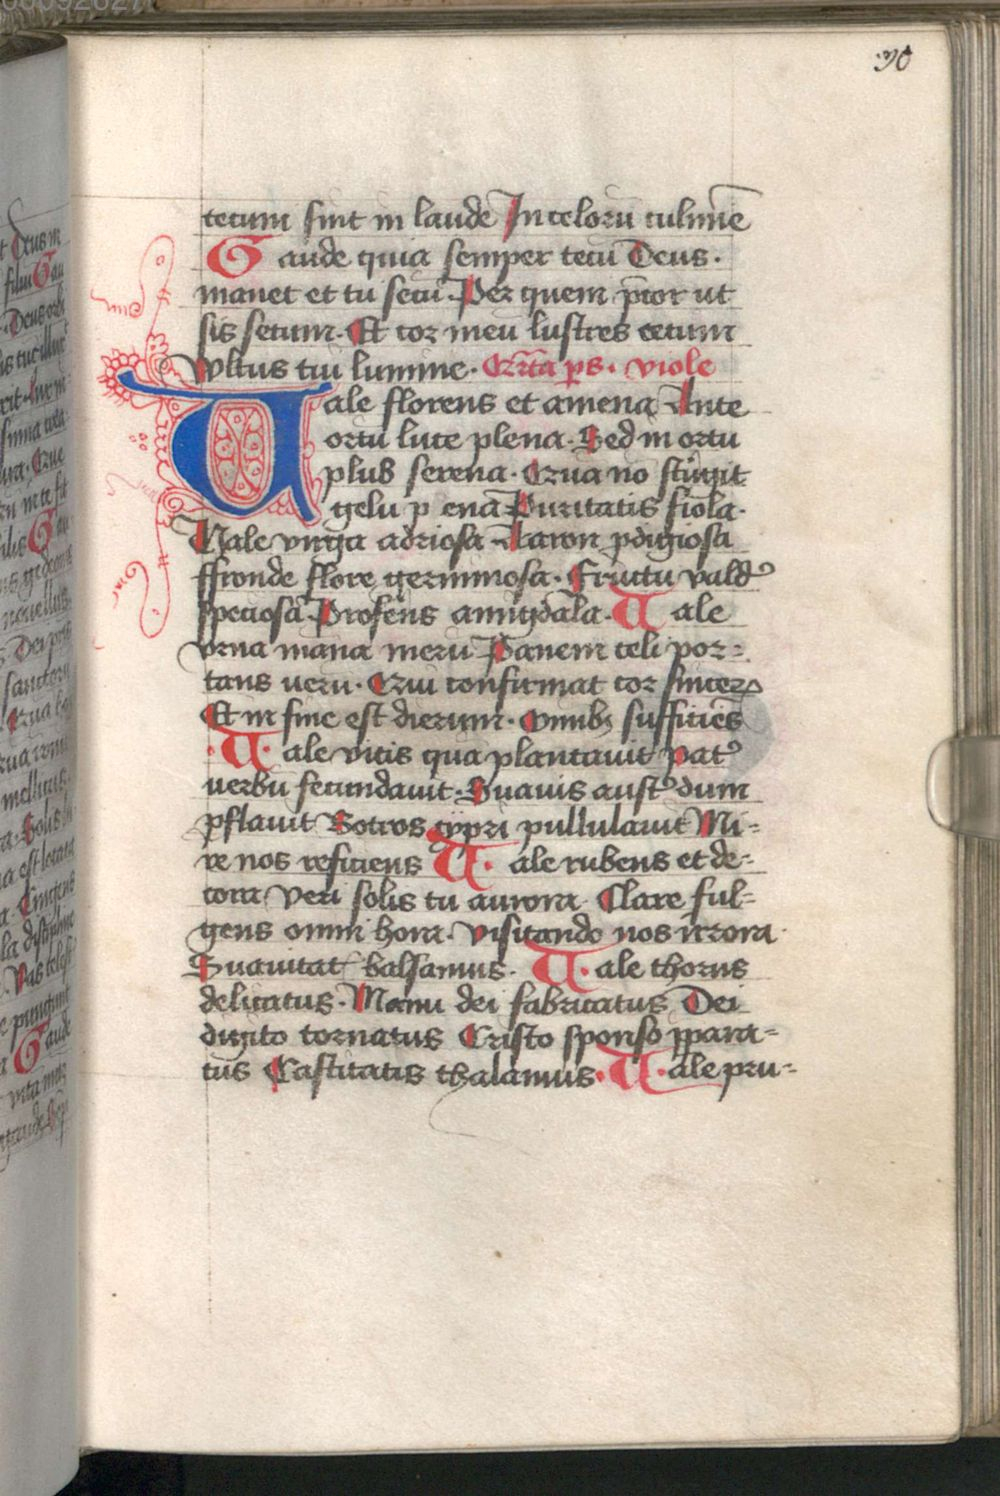 30
tecum sint in laude In celorū culmīe
Gaude quia semper tecū Deus.
manet et tu secū. Per quem p̄cor ut
sis secum. Et cor meū lustres cecum
Vultus tui lumine. viole
Uale florens et amena Ante
ortū luce plena. Sed in ortu
plus serena. Crua nō stūgit
gelu pena Puritatis fiola.
Vale virga adriosa Aaron pdigiosa
ffronde flore germinosa. Fructu valde
speciosa. Profēns amigdala. Uale
vrna mana merū Panem celi por=
tans uerū. Cuiꝰ confirmat cor sincerū
Et in fine est dierum. Omnibꝫ sufficiēs
Uale vitis quā plantauit pat̓
uerbū fecundauit. Suauis aust̓ dum
pflauit Botros cypri pullulauit Mi=
re nos reficiens Uale rubens et de=
cora Veri solis tu aurora Clare ful=
gens omni hora. Visitando nos irrora
Suauitat̓ balsamus. Uale thorus
delicatus. Manu dei fabricatus Dei
digito tornatus Cristo sponso ppara=
tus Castitatis thalamus. Uale pru=